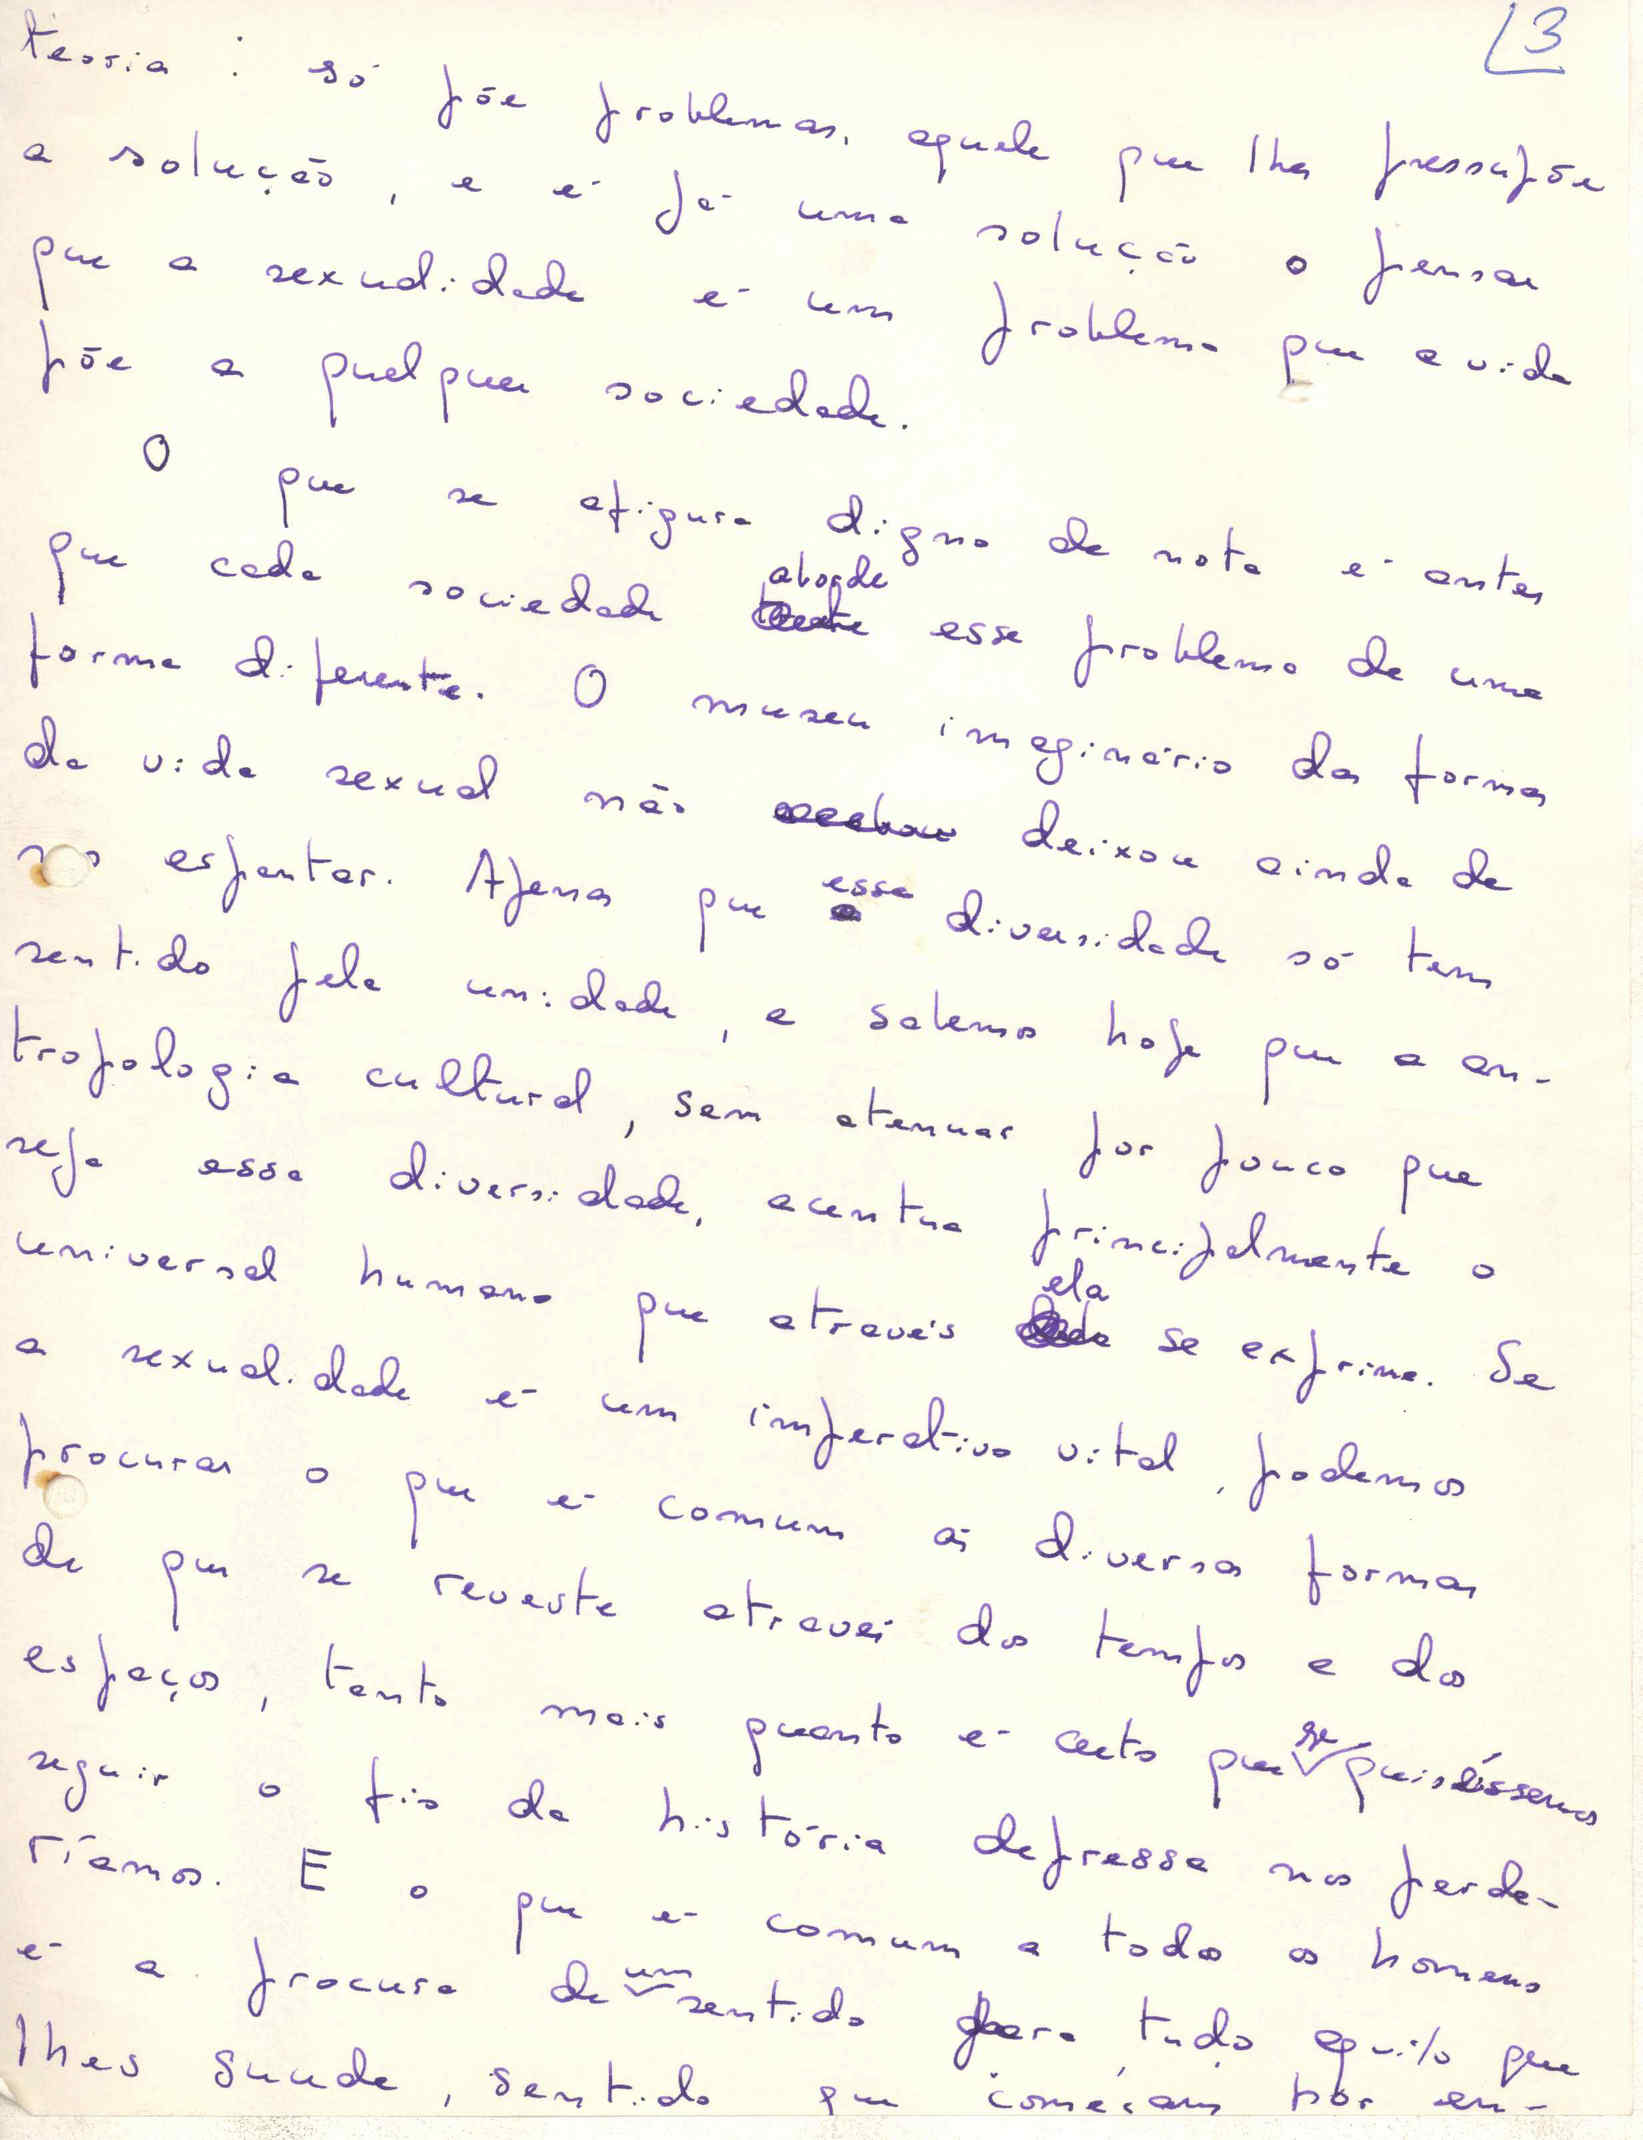 3
teoria : só põe problemas, aquele que lhes pressupõe
a solução, e é já uma solução o pensar
que a sexualidade é um problema que a vida
põe a qualquer sociedade.
O que se afigura digno de nota é antes
que cada sociedade aborde esse problema de uma
forma diferente. O museu imaginário das formas
da vida sexual não deixou ainda de
nos espantar. Apenas que essa diversidade só tem
sentido pela unidade, e sabemos hoje que a an-
tropologia cultural, sem atenuar por pouco que
seja essa diversidade, acentua principalmente o
universal humano que através dela se exprime. Se
a sexualidade é um imperativo vital, podemos
procurar o que é comum às diversas formas
de que se reveste através dos tempos e dos
espaços, tanto mais quanto é certo que se quiséssemos
seguir o fio da história depressa nos perde-
ríamos. E o que é comum a todos os homens
é a procura de um sentido para tudo aquilo que
lhes sucede, sentido que começam por en-